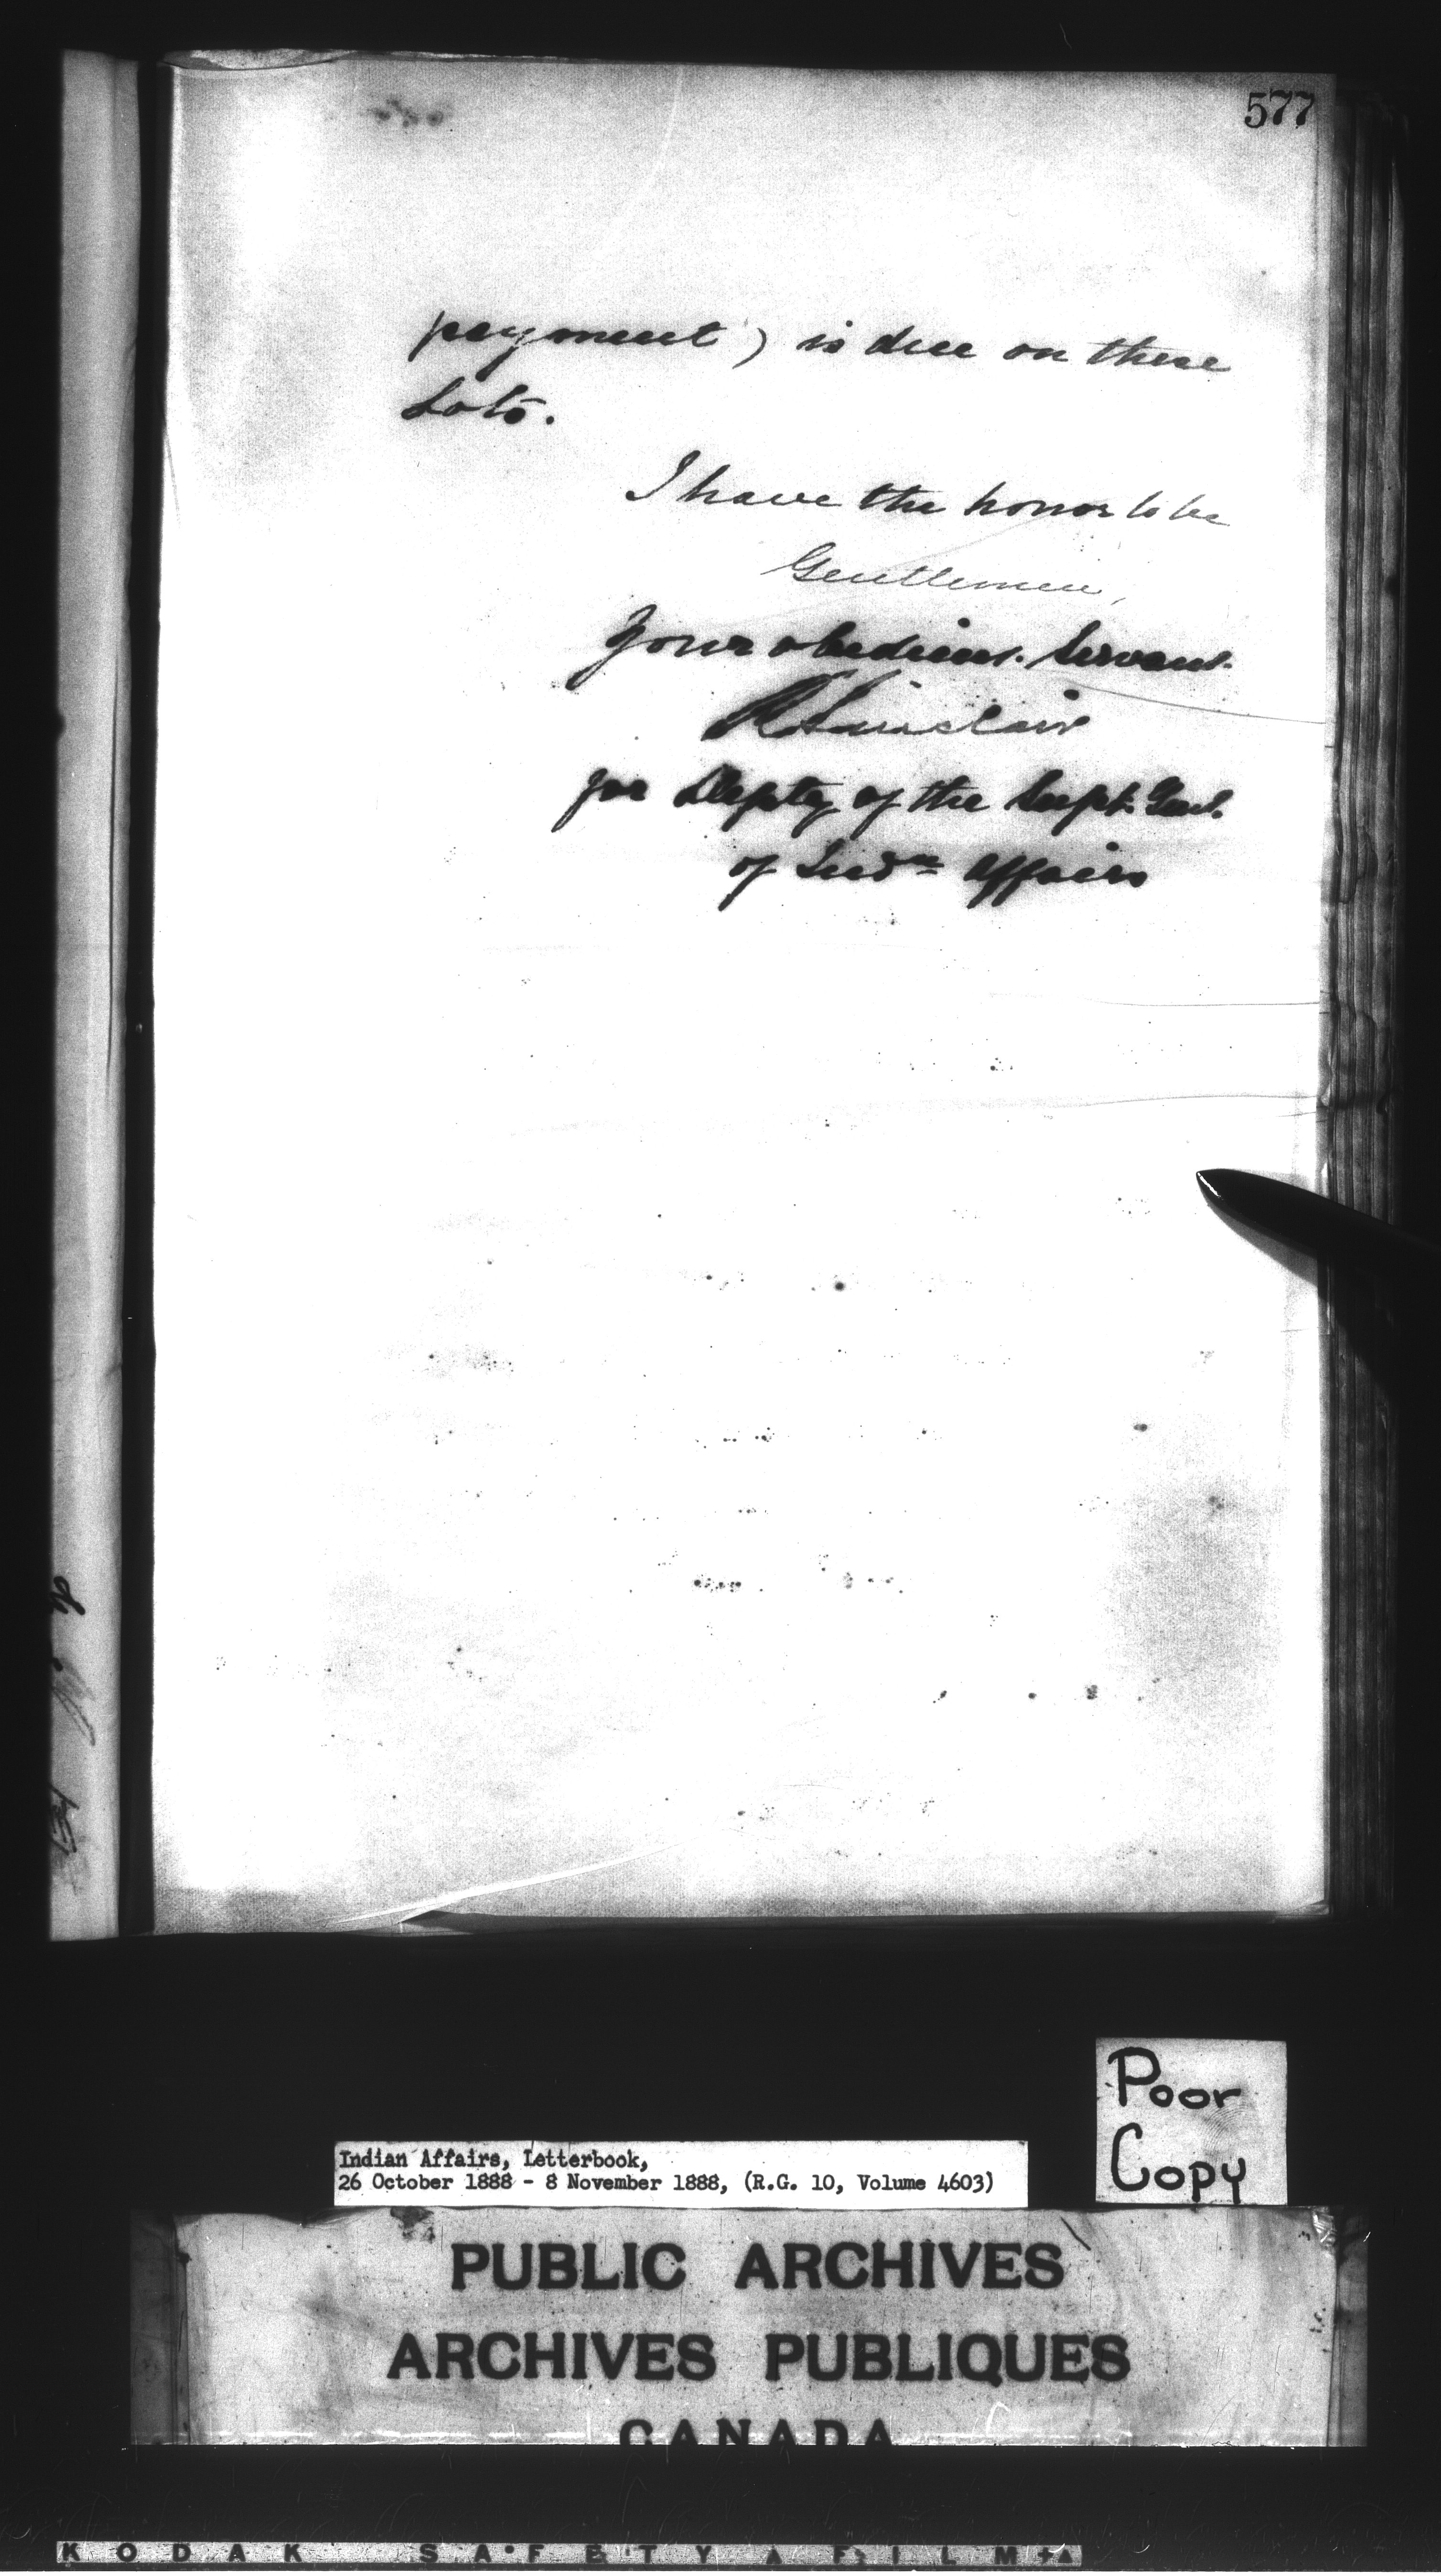 577
payment) is due on these
Lots.
I have the honor to be
Gentlemen,
Your obedient. Servant.
R Sinclair
for Depty of the Supt. Genl.
of Indn Affairs
Poor
Copy
Indian Affairs, Letterbook,
26 October 1888 - 8 November 1888, (R.G. 10, Volume 4603)
PUBLIC ARCHIVES
ARCHIVES PUBLIQUES
CANADA
KODAK SAFETY FILM